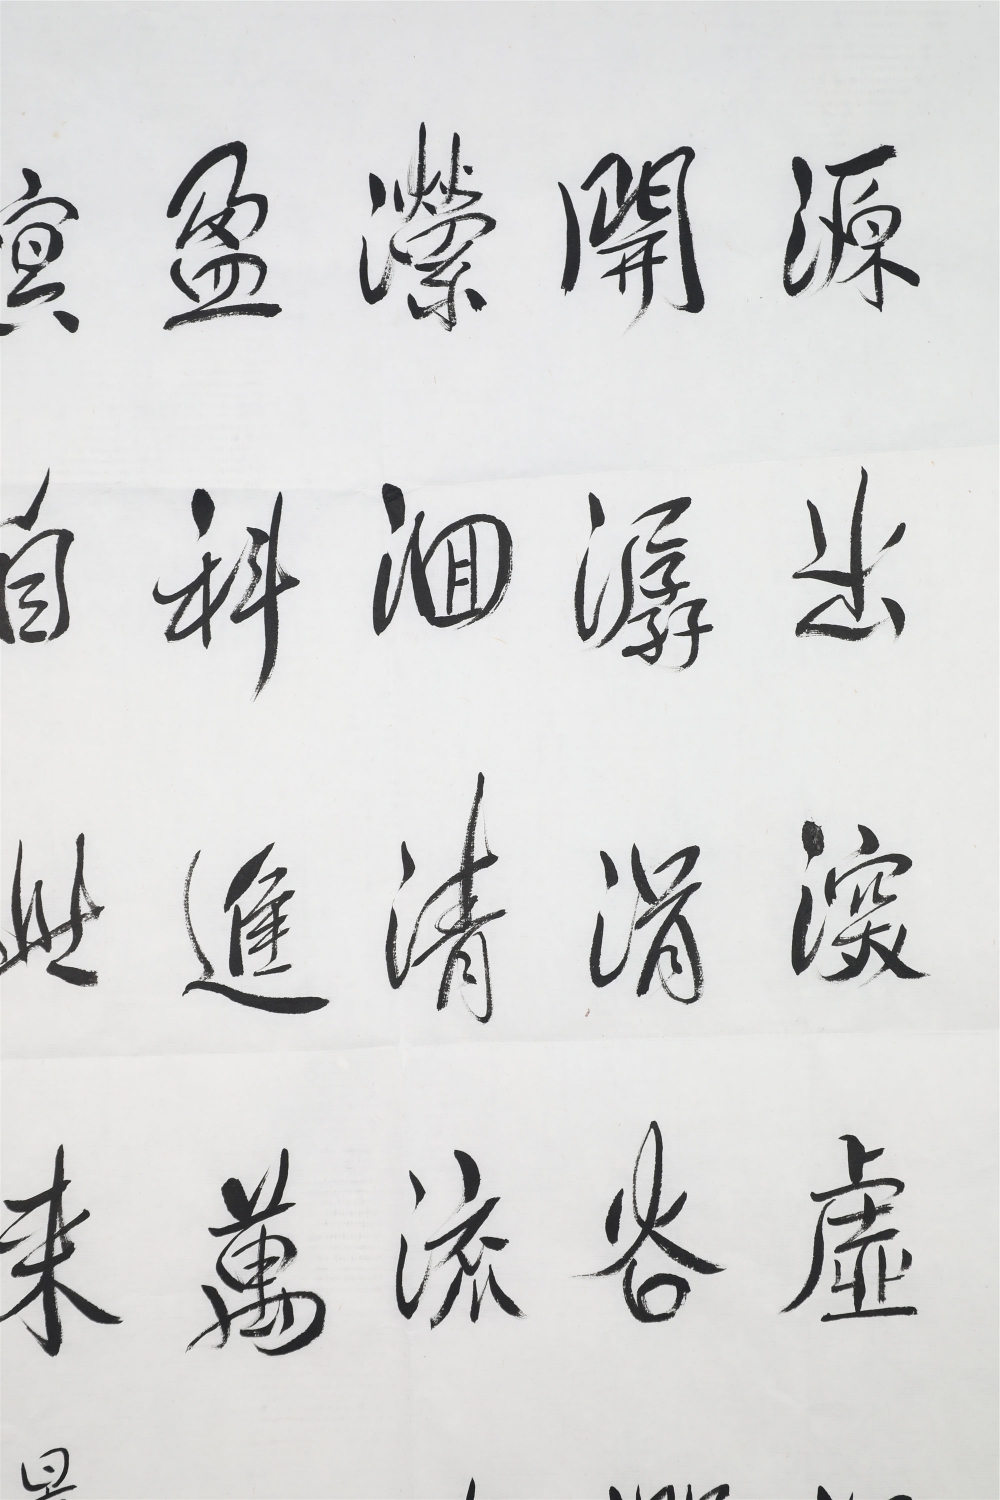 源出深虛
開潺涓谷
瀠洄清流
盈科進萬
自此來